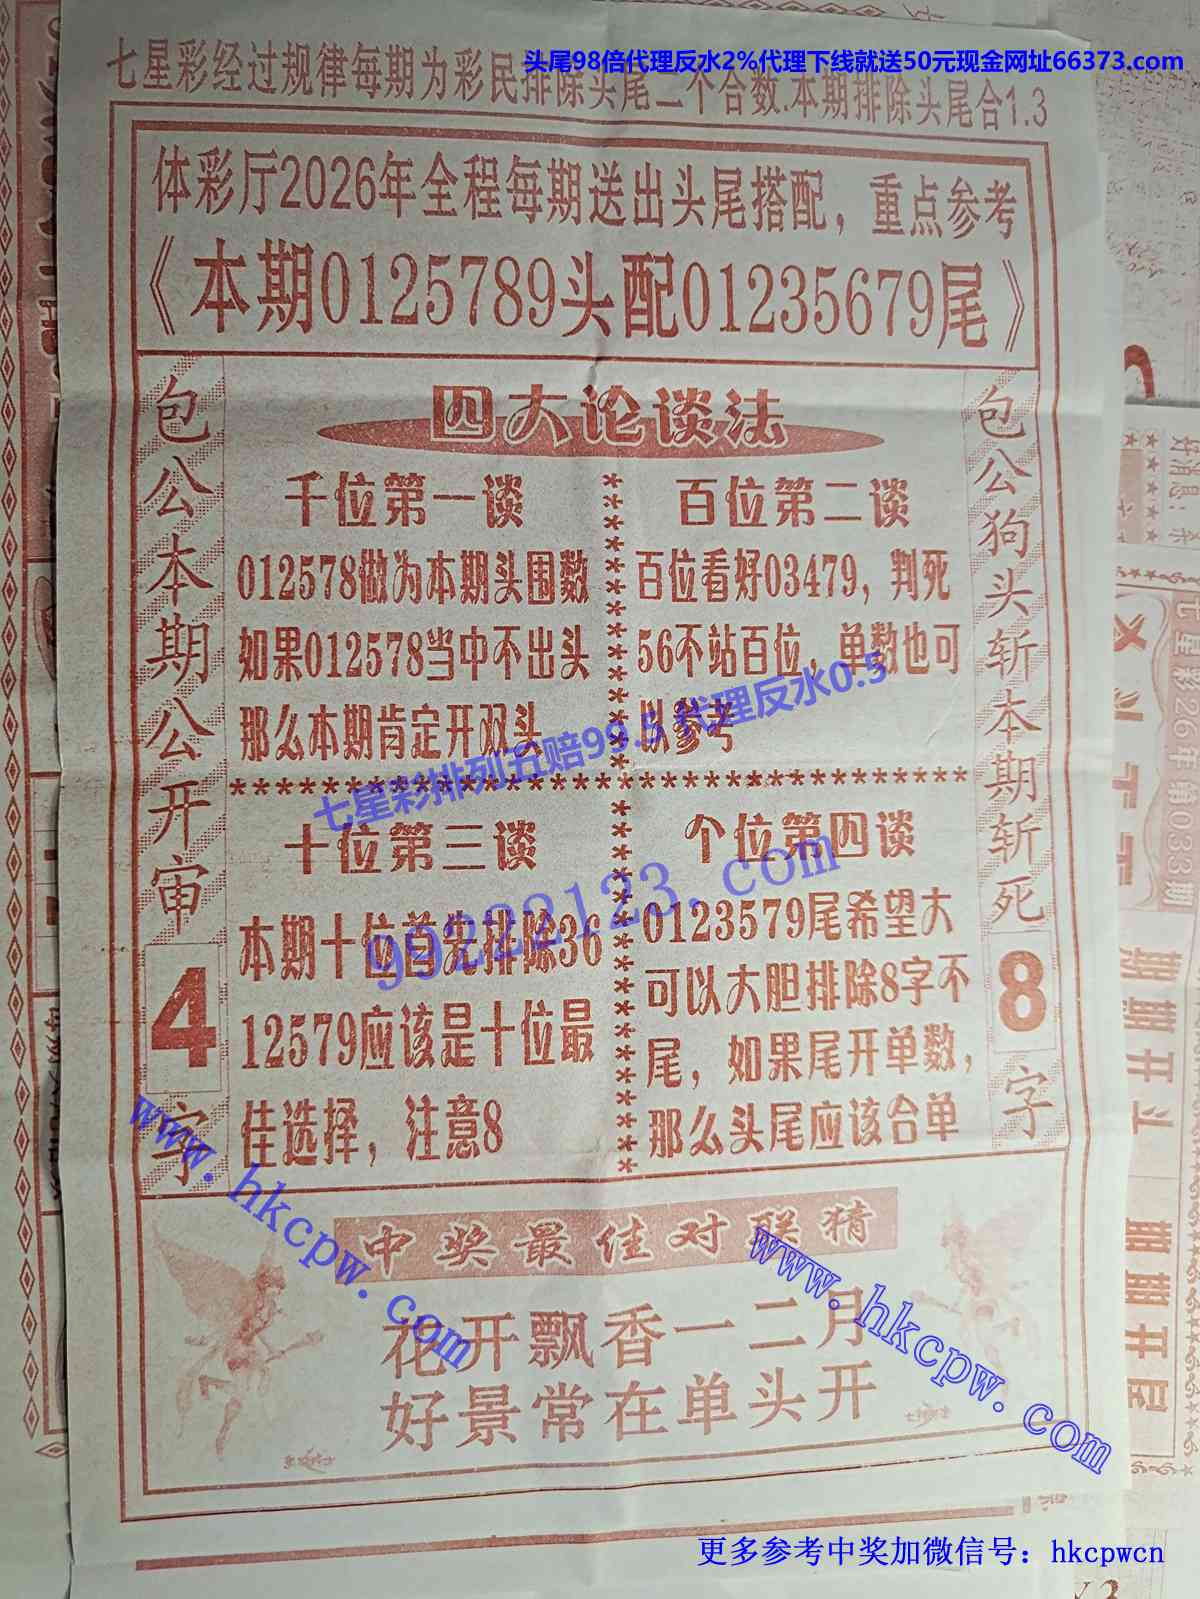 头尾98倍代理反水2%代理下线就送50元现金网址66373.com
七星彩经过规律每期为彩民排除头尾二个合数.本期排除头尾合1.3
体彩厅2026年全程每期送出头尾搭配，重点参考
《本期0125789头配01235679尾》
包公本期公开审
4
字
四大论谈法
千位第一谈
012578做为本期头围数
如果012578当中不出头
那么本期肯定开双头
百位第二谈
百位看好03479，判死
56不站百位，单数也可
以参考
七星彩排列五赔99.5 代理反水0.5
99222123.com
十位第三谈
本期十位首先排除36
12579应该是十位最
佳选择，注意8
个位第四谈
0123579尾希望大
可以大胆排除8字不
尾，如果尾开单数，
那么头尾应该合单
包公狗头斩本期斩死
8
字
www.hkcpw.com
www.hkcpw.com
中奖最佳对联猜
花开飘香一二月
好景常在单头开
更多参考中奖加微信号：hkcpwcn
七星彩26年第033期
期期开
期期开尾